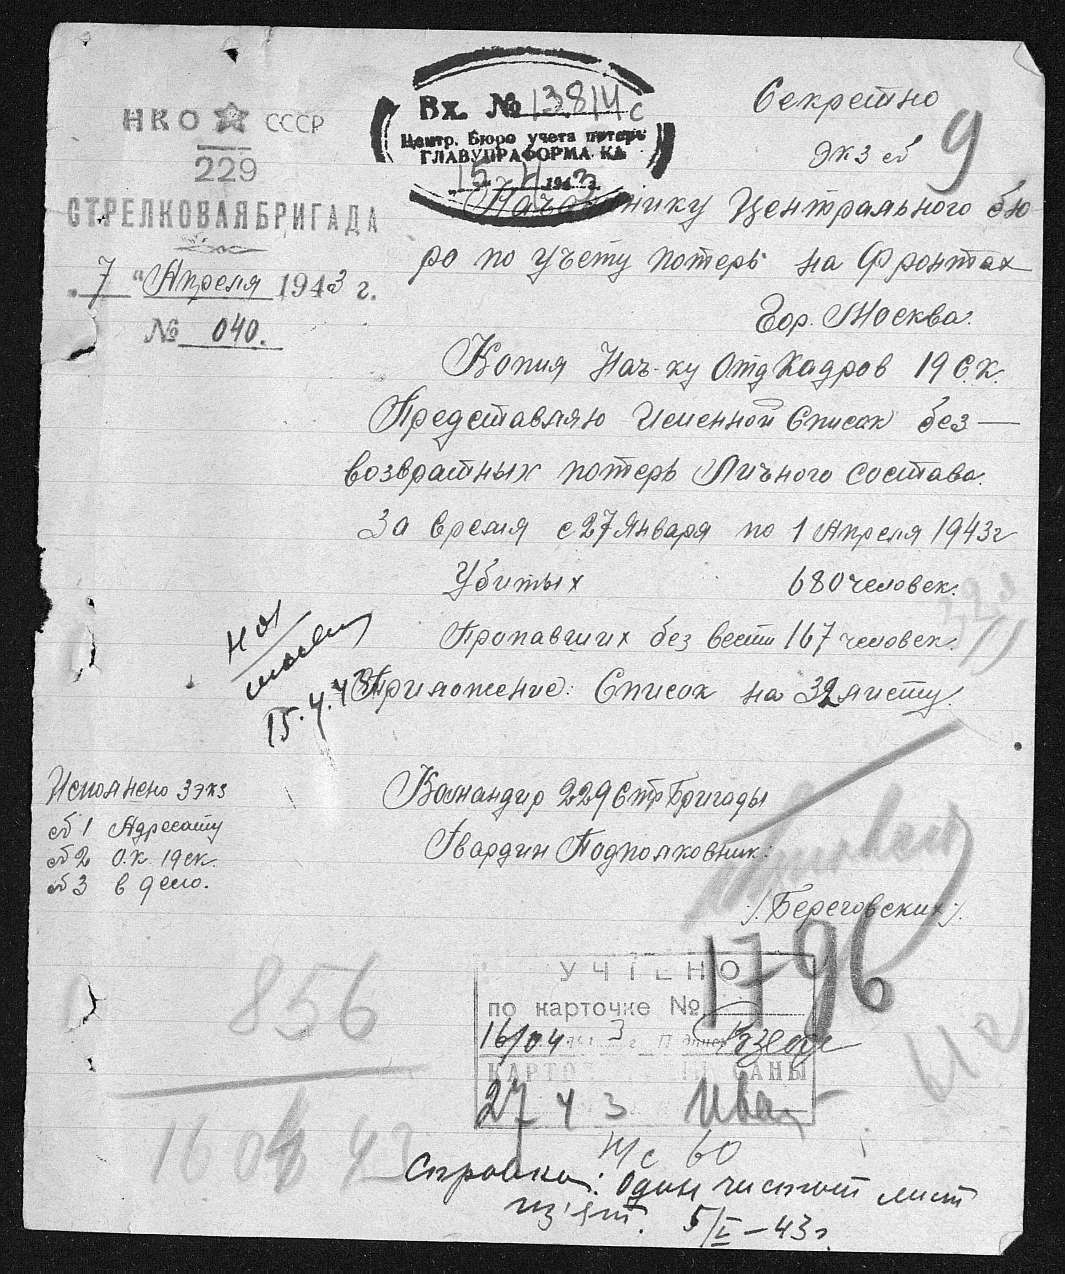 НКО СССР
229
СТРЕЛКОВАЯ БРИГАДА
"7" Апреля 1943 г.
№ 040.
Вх. № 13814с
Центр. Бюро учета потерь
ГЛАВУПРАФОРМА КА
15 4 1943 г.
Секретно
экз №
9
Начальнику Центрального бю
ро по учету потерь на Фронтах
Гор. Москва.
Копия Нач-ку Отд Кадров 19 С.К.
Представляю Именной Список без—
возвратных потерь Личного состава.
За время с 27 Января по 1 Апреля 1943г
Убитых 680 человек.
Пропавших без вести 167 человек.
Приложение: Список на 32 листу.
15.4.43
Командир 229 Стр Бригады
Гвардии Подполковник:
/.Береговских/.
Исполнено 3 экз
№ 1 Адресату
№ 2 О.К. 19 ск.
№ 3 в дело.
856
УЧТЕНО
по карточке № 17-96
16/04 3 г
27 4 3
Справка: Один чистый лист
из'ят. 5/V–43г.